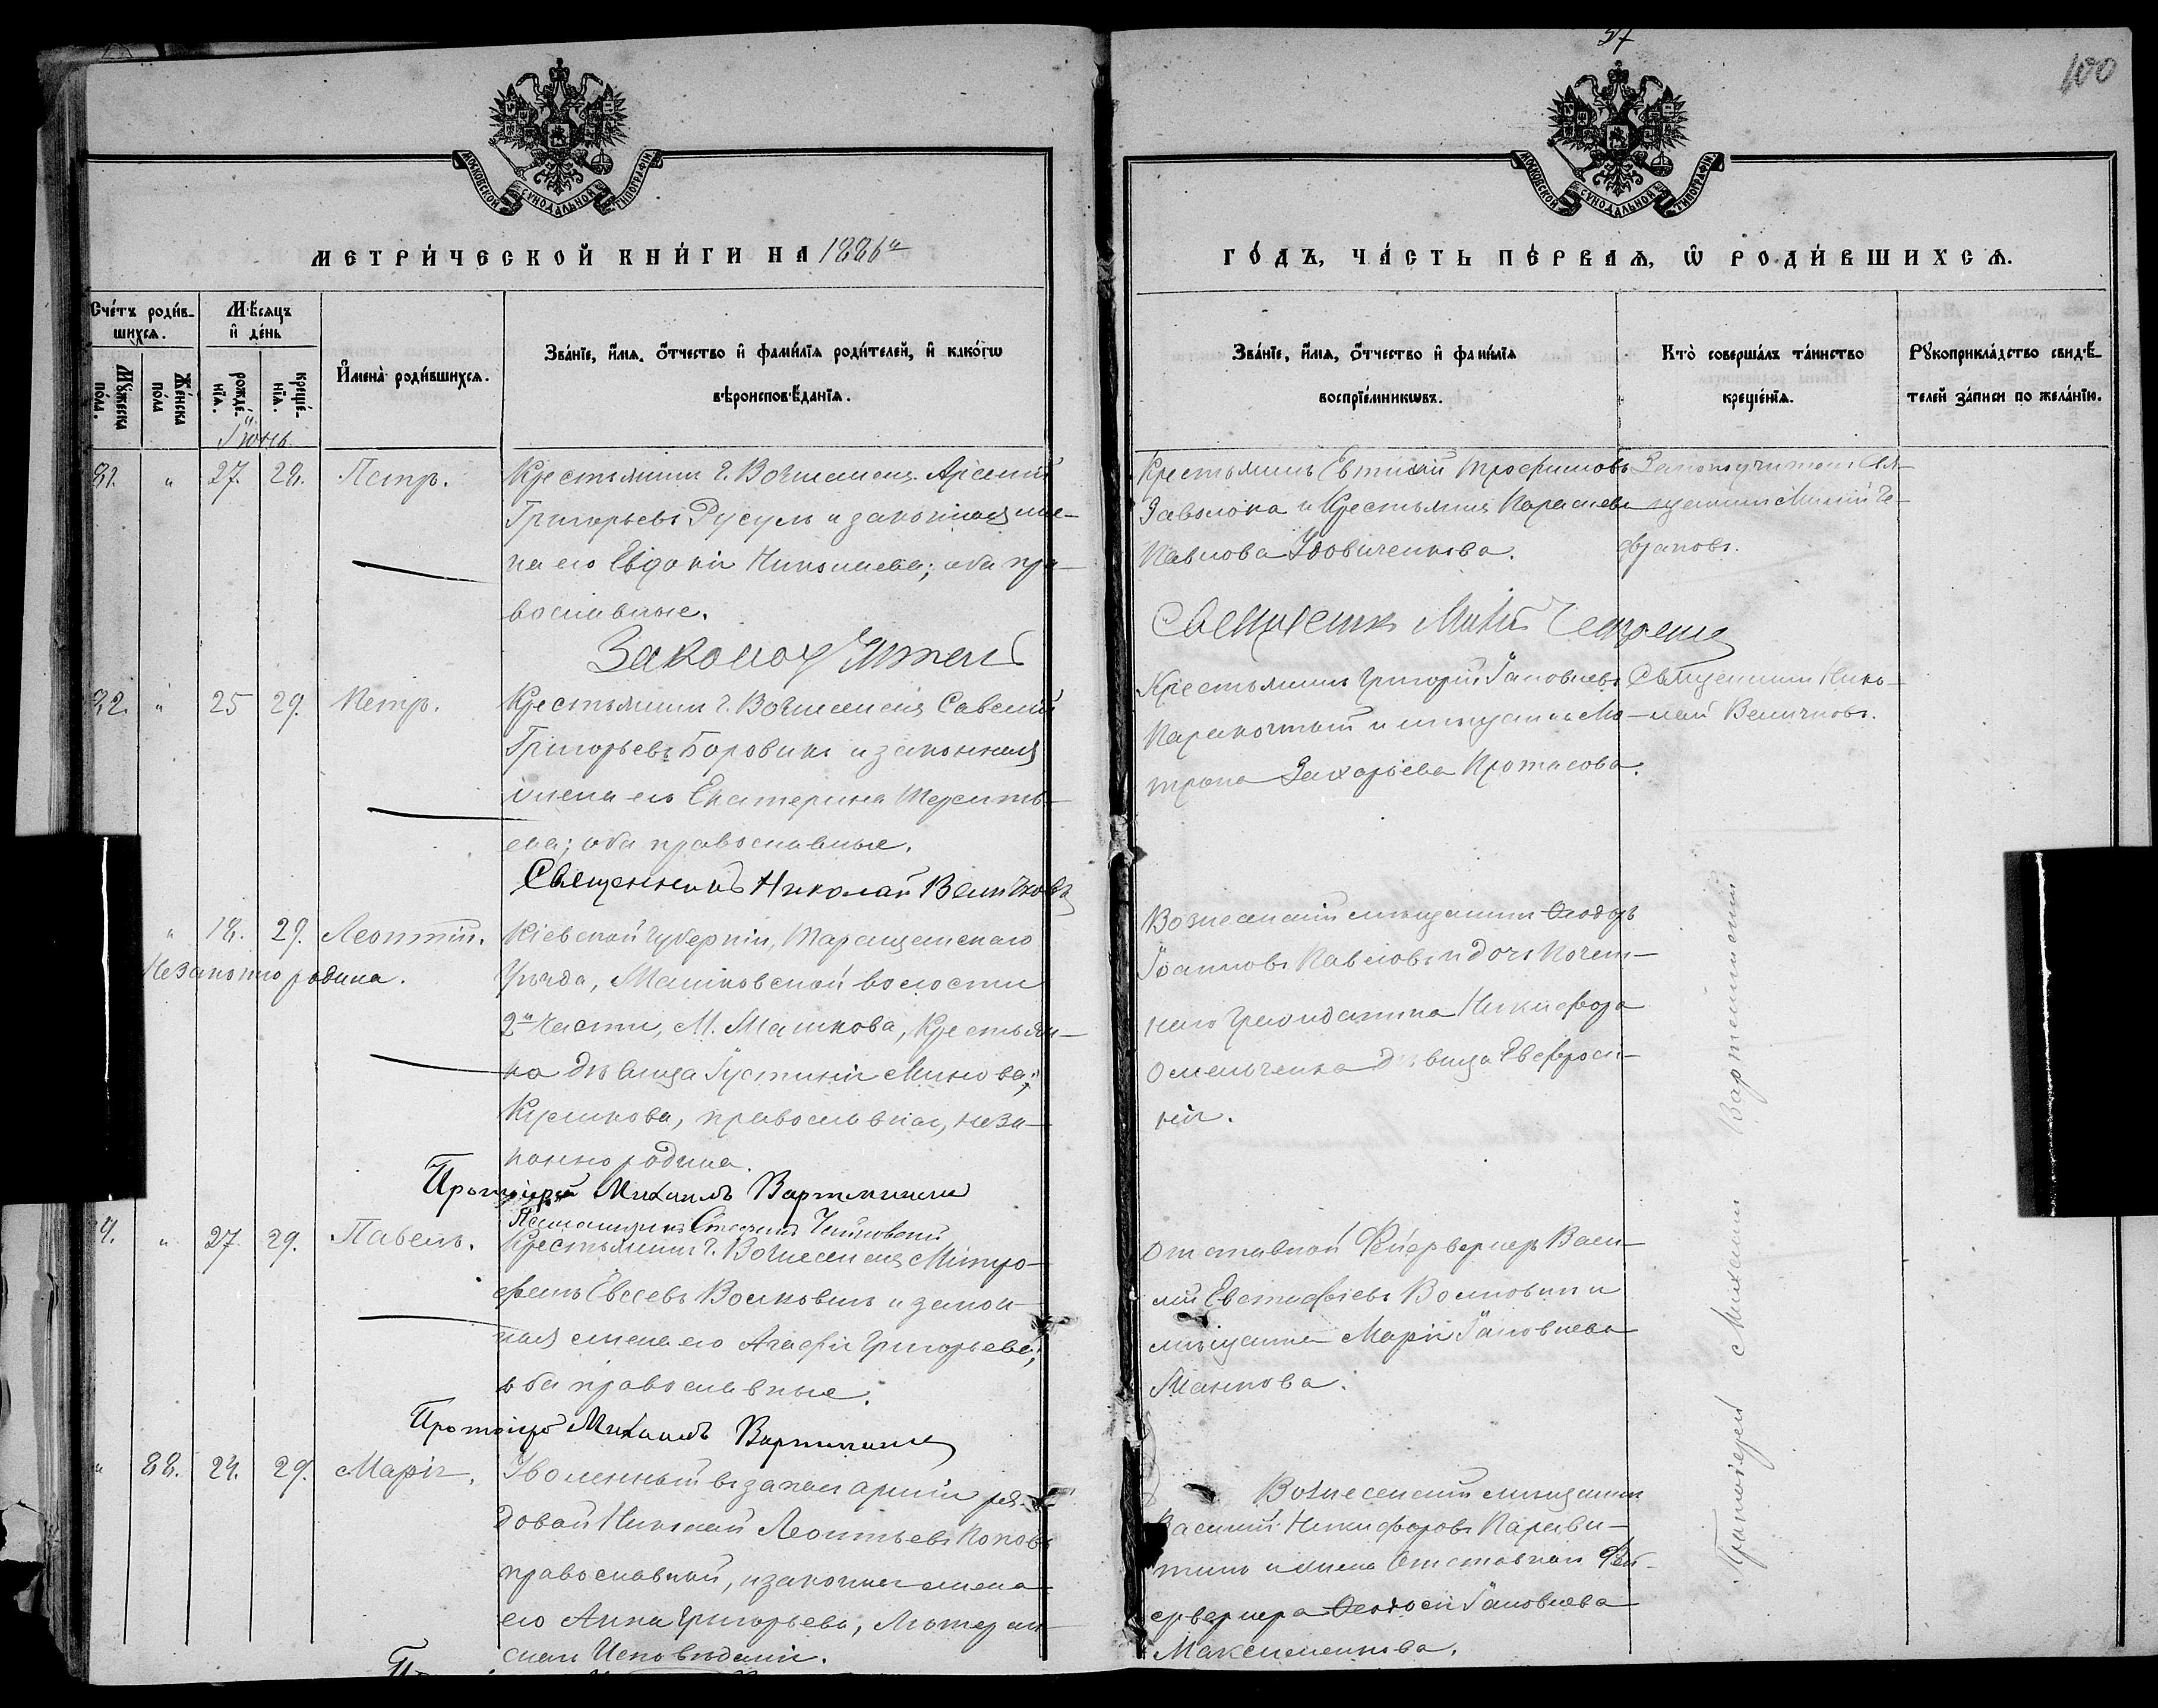 57
100
МОСКОВСКОЙ СѴНОДАЛЬНОЙ ТИПОГРАФІИ
МОСКОВСКОЙ СѴНОДАЛЬНОЙ ТИПОГРАФІИ
МЕТРИ́ЧЕСКОЙ КНИ́ГИ НА 1886й
ГО́ДЪ, ЧА́СТЬ ПЕ́РВАѦ, Ѡ҆ РОДИ́ВШИХСѦ.
Сче́тъ роди́в-
шихсѧ.
Мѣ́сѧцъ
и҆ де́нь
Мꙋ́жеска
по́ла.
Же́нска
по́ла
рожде́-
нїѧ.
креще́-
нїѧ.
Іюнь.
И҆мена̀ роди́вшихсѧ.
Зва́нїе, и҆́мѧ, ѻ҆́тчество и҆ фами́лїѧ роди́телей, и҆ како́гѡ
вѣроисповѣ́данїѧ.
Зва́нїе, и҆́мѧ, ѻ҆́тчество и҆ фами́лїѧ
воспрїе́мникѡвъ.
Кто̀ соверша́лъ та́инство
креще́нїѧ.
Рꙋкоприкла́дство свидѣ́-
телей за́писи по жела́нїю.
81. " 27. 28. Петръ.
Крестьянинъ г. Вознесенска Арсений
Григорьевъ и законная же-
на его Евдокія Николаева; оба пра-
вославные.
Крестьянинъ Евтихій Трофимовъ
Заволока и Крестьянка Параскева
Павлова Удовиченкова.
Законоучитель Свя-
щенникъ
Законоучитель
Священникъ
82. " 25 29. Петръ.
Крестьянинъ г. Вознесенска Савелий
Григорьевъ Боровикъ и законная
жена его Екатерина Теренть-
ева; оба православные.
Священникъ Николай Величковъ
Крестьянинъ Григорій Іаковлевъ
и мещанка Ма-
трона Захарьева Протасова.
Священникъ Нико-
лай Величковъ.
" 18. 29. Леонтій.
Незаконно родила.
Кіевской губерніи, Таращанскаго
Уѣзда, Машковской волости
2й части, М. Машкова, Крестьян-
ка дѣвица Іустинія
православная, неза-
конно родила.
Протоіерей Михаилъ
Вознесенскій мѣщанинъ Ѳеодоръ
Іоанновъ Павловъ и дочь Почет-
наго Гражданина Никифора
Омельченка дѣвица Евфроси-
нія.
" 27. 29. Павелъ.
Псаломщикъ
Крестьянинъ г. Вознесенска Митро-
фанъ Евсеевъ и закон-
ная жена его Агафія Григорьева;
оба православные.
Протоіерей Михаилъ
Отставной Фейерверкеръ Васи-
лій Евстафіевъ и
мѣщанка Марія Іаковлева
Манкова.
" 88. 24. 29. Марія.
Уволенный въ запасъ арміи ря-
довой Николай Леонтьевъ Поповъ
православный, и законная жена
его Анна Григорьева, Лютеран-
скаго Исповѣданія.
Вознесенскій мѣщанинъ
Василий Никифоровъ
и жена Отставнаго Фей-
ерверкера Ѳеодосія Іаковлева
Максименкова.
Протоіерей Михаилъ